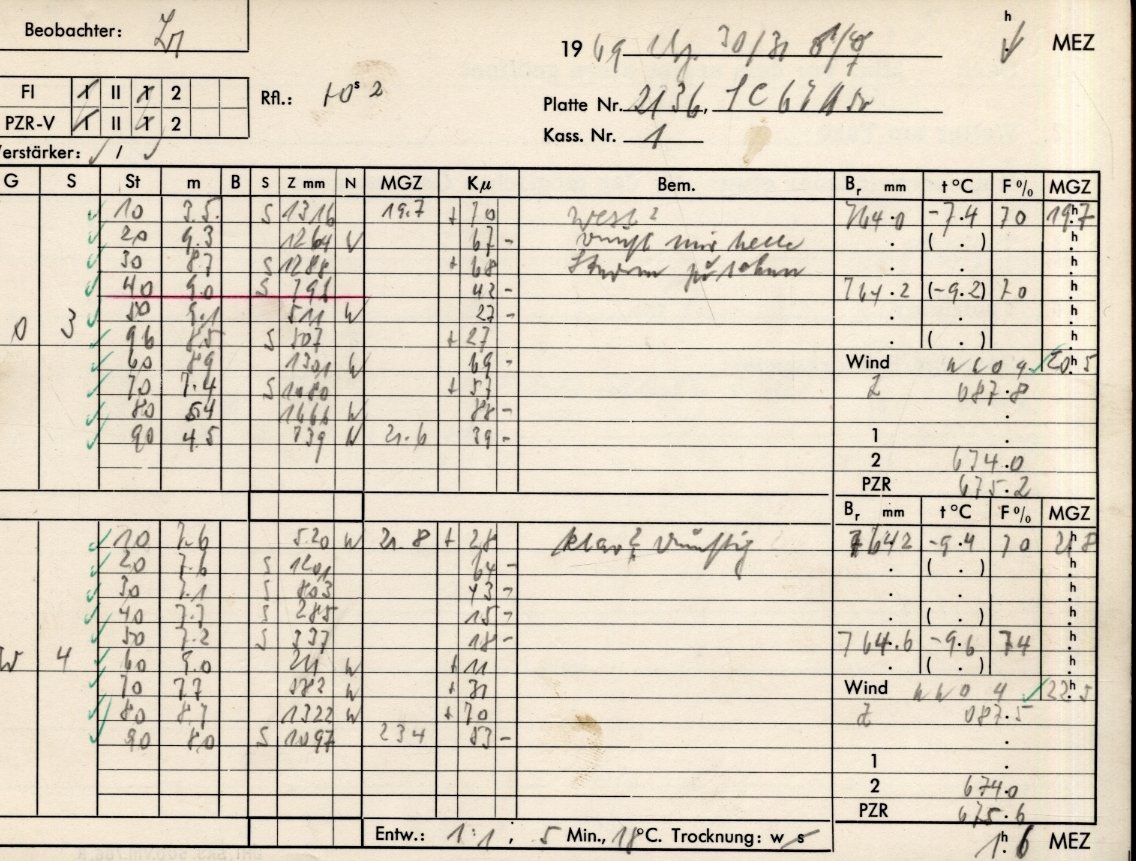 Beobachter:
19 69 30/31 h MEZ
FI I II 1 2 Rfl.: +0ˢ 2
Platte Nr. 2136,
PZR-V I II 1 2
Kass. Nr. 1
Verstärker: /
G S St m B S Z mm N MGZ Kμ Bem. Bᵣ mm t °C F % MGZ
10 3.5 S 1316 19.7 + 70 West? 764.0 -7.4 70 19ʰ7
20 9.3 1264 W 67 - ( . ) h
30 8.7 S 1288 + 68 h
40 9.0 S 791 42 - 764.2 (-9.2) 70 h
50 9.1 511 W 27 - h
0 3 96 8.5 S 507 + 27 ( . ) h
60 8.9 1301 W 69 - Wind 20ʰ5
70 7.4 S 1080 + 57 Z 087.8
80 5.4 1666 W 88 -
90 4.5 739 W 21.6 39 - 1 .
2 674.0
PZR 675.2
Bᵣ mm t °C F % MGZ
10 7.6 520 W 21.8 + 28 klar, dunstig 764.2 -9.4 70 21ʰ8
20 7.6 S 1201 64 - ( . ) h
30 7.1 S 803 43 - h
40 7.7 S 285 15 - ( . ) h
50 7.2 S 337 18 - 764.6 -9.6 74 h
W 4 60 9.0 211 W + 11 ( . ) h
70 7.7 582 W + 31 Wind 22ʰ5
80 8.7 1322 W + 70 Z 087.5
90 8.0 S 1097 23.4 53 -
1 .
2 674.0
PZR 675.6
Entw.: 1:1; 5 Min., 18°C. Trocknung: w s 1ʰ.6 MEZ